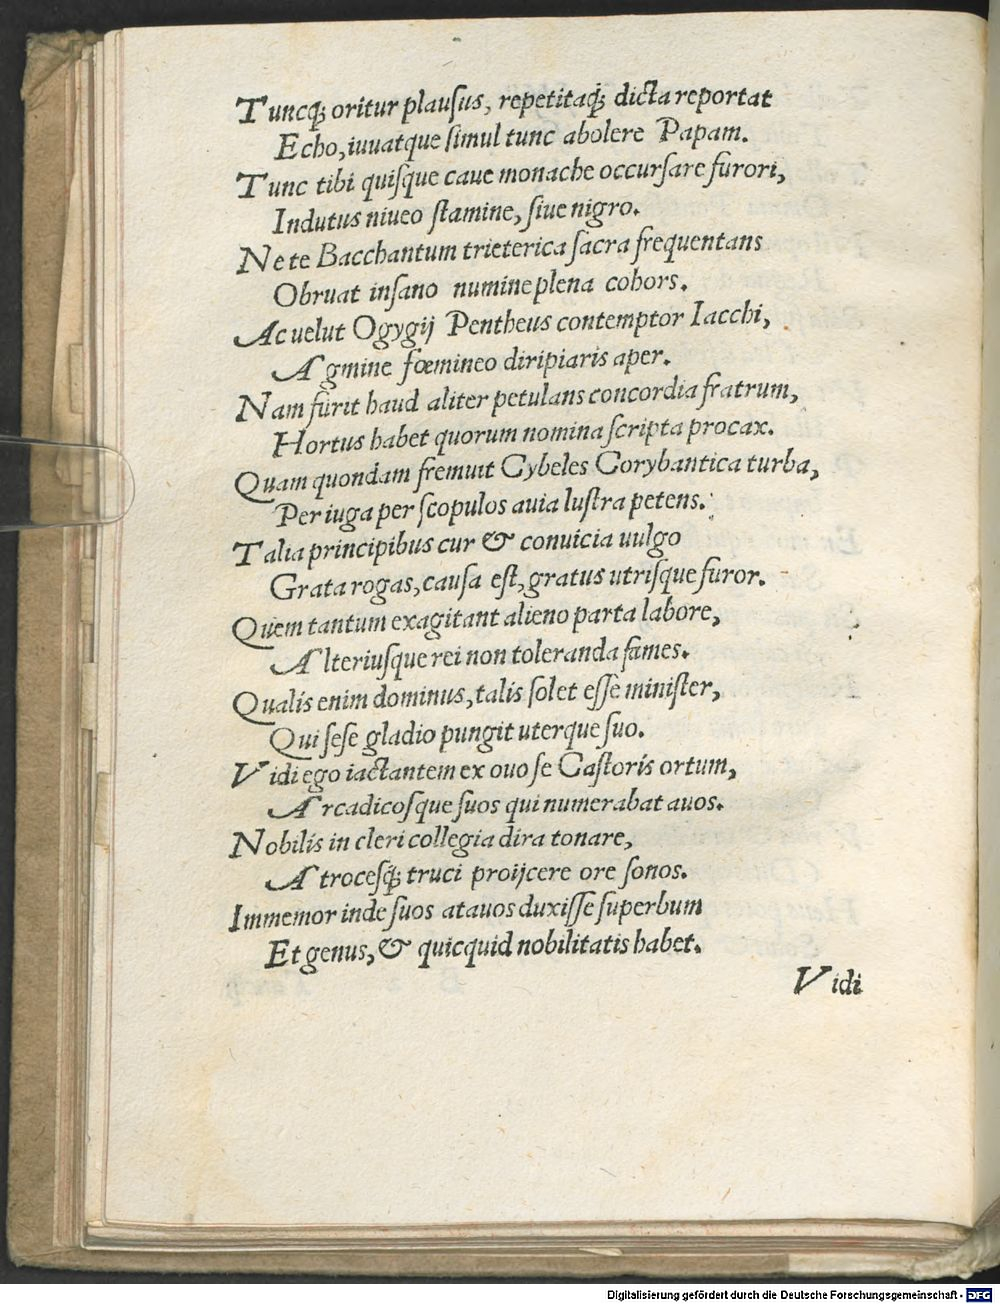 Tuncq; oritur plauſus, repetitaq; dicta reportat
Echo, iuuatque ſimul tunc abolere Papam.
Tunc tibi quiſque caue monache occurſare furori,
Indutus niueo ſtamine, ſiue nigro.
Ne te Bacchantum trieterica ſacra frequentans
Obruat inſano numine plena cohors.
Ac uelut Ogygij Pentheus contemptor Iacchi,
Agmine fœmineo diripiaris aper.
Nam furit haud aliter petulans concordia fratrum,
Hortus habet quorum nomina ſcripta procax.
Quam quondam fremuit Cybeles Corybantica turba,
Per iuga per ſcopulos auia luſtra petens.
Talia principibus cur & conuicia uulgo
Grata rogas, cauſa eſt, gratus utriſque furor.
Quem tantum exagitant alieno parta labore,
Alteriusque rei non toleranda fames.
Qualis enim dominus, talis ſolet eſſe miniſter,
Qui ſeſe gladio pungit uterque ſuo.
Vidi ego iactantem ex ouo ſe Caſtoris ortum,
Arcadicoſque ſuos qui numerabat auos.
Nobilis in cleri collegia dira tonare,
Atroceſq; truci proijcere ore ſonos.
Immemor inde ſuos atauos duxiſſe ſuperbum
Et genus, & quicquid nobilitatis habet.
Vidi
Digitalisierung gefördert durch die Deutsche Forschungsgemeinschaft - DFG